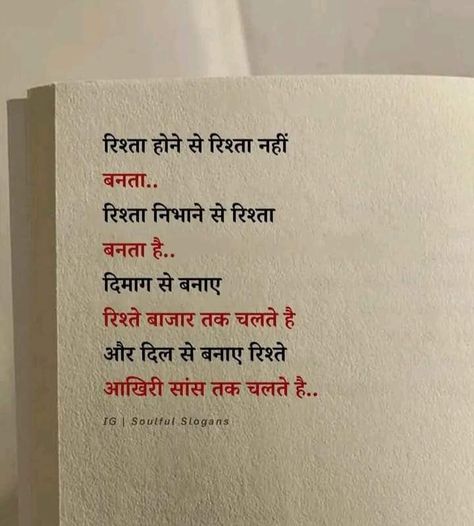 रिश्ता होने से रिश्ता नहीं
बनता..
रिश्ता निभाने से रिश्ता
बनता है..
दिमाग से बनाए
रिश्ते बाजार तक चलते है
और दिल से बनाए रिश्ते
आखिरी सांस तक चलते है..
IG | Soulful Slogans